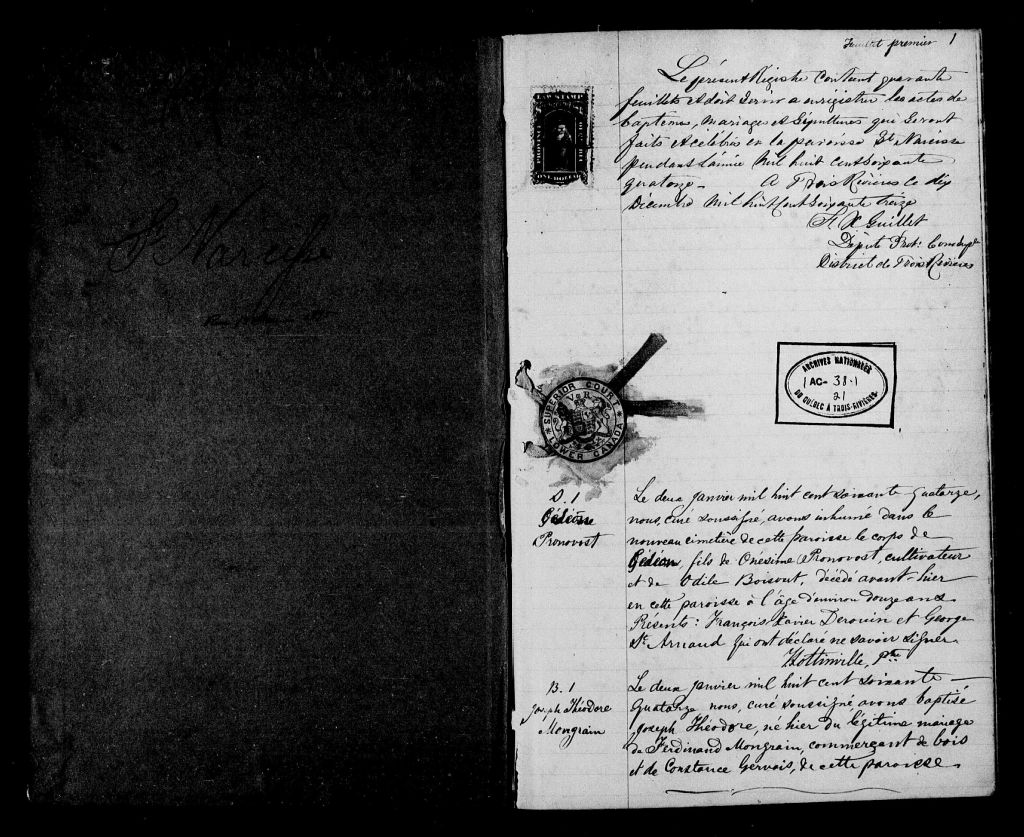 feuillet premier 1
Le présent Régistre contient quarante
feuillets et doit servir a enrégistrer les actes de
baptêmes, Mariages et Sépultures qui seront
faits et célébrés en la paroisse St Narcisse
pendant l'année Mil huit cent soixante
quatorze. A Trois Rivières ce dix
Décembre Mil huit cent soixante treize
F. X Guillet
Député Prot.
District de Trois Rivières
LAW STAMP
ONE DOLLAR
SUPERIOR COURT
V R
LOWER CANADA
ARCHIVES NATIONALES
AC- 38-1
21
DU QUÉBEC À TROIS-RIVIÈRES
S. 1
Gédéon
Pronovost
Le deux janvier mil huit cent soixante quatorze,
nous, curé soussigné, avons inhumé dans le
nouveau cimetière de cette paroisse le corps de
Gédéon, fils de Onésime Pronovost, cultivateur
et de Odile Boisvert, décédé avant-hier
en cette paroisse à l'âge d'environ douze ans.
Présents: François Xavier Derouin et George
St. Arnaud qui ont déclaré ne savoir signer.
Hottinville, Ptre
B. 1
Joseph Théodore
Mongrain
Le deux janvier mil huit cent soixante
quatorze nous, curé soussigné avons baptisé
Joseph Théodore, né hier du légitime mariage
de Ferdinand Mongrain, commerçant de bois
et de Constance Gervais, de cette paroisse.